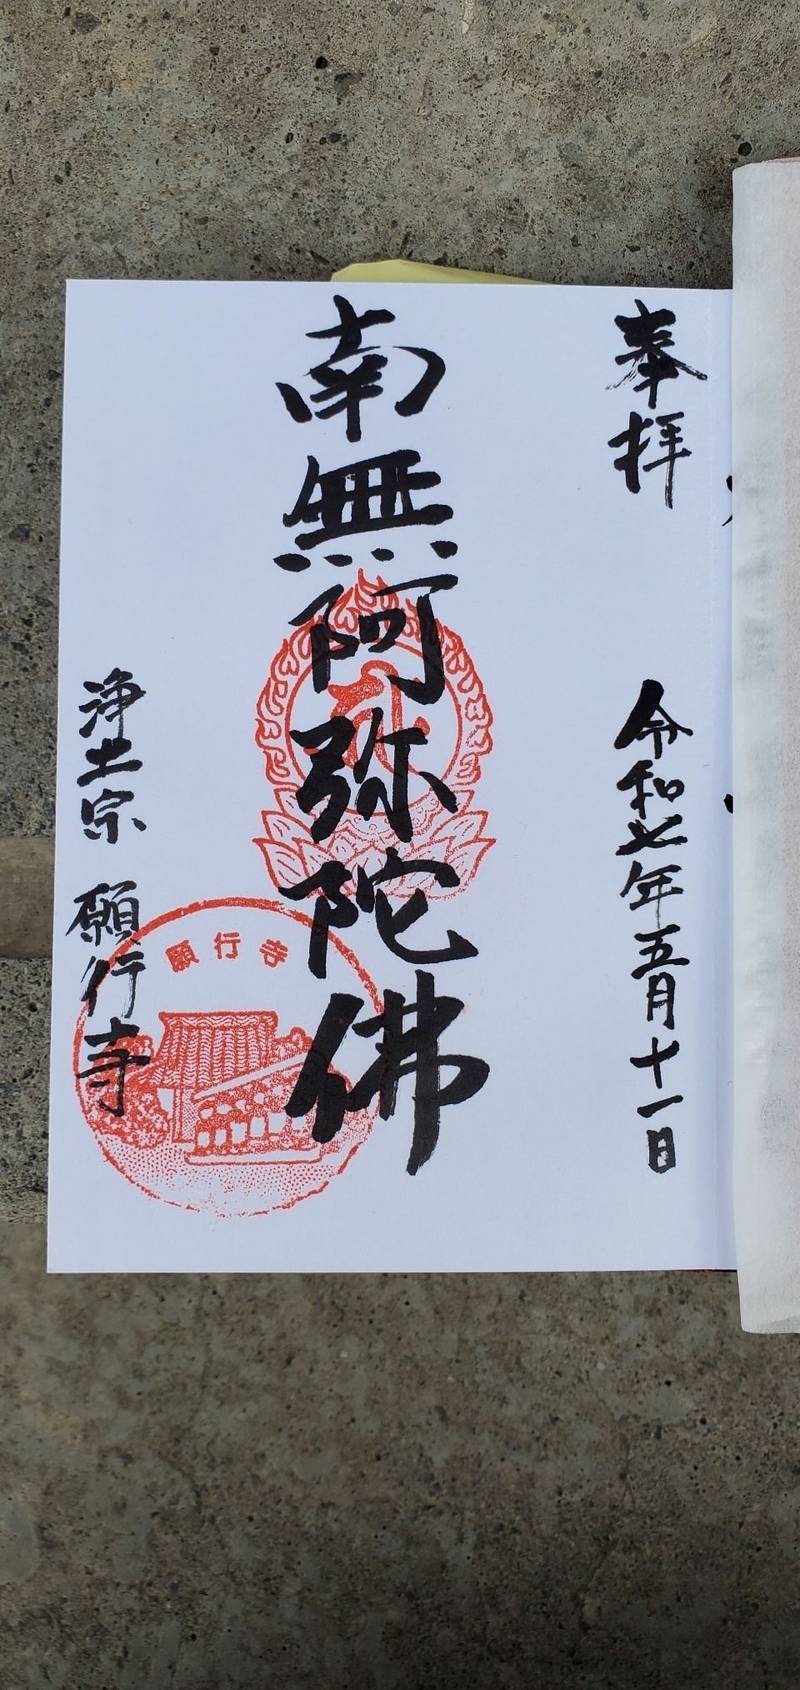 奉拝
令和七年五月十一日
南無阿弥陀佛
浄土宗 願行寺
願行寺